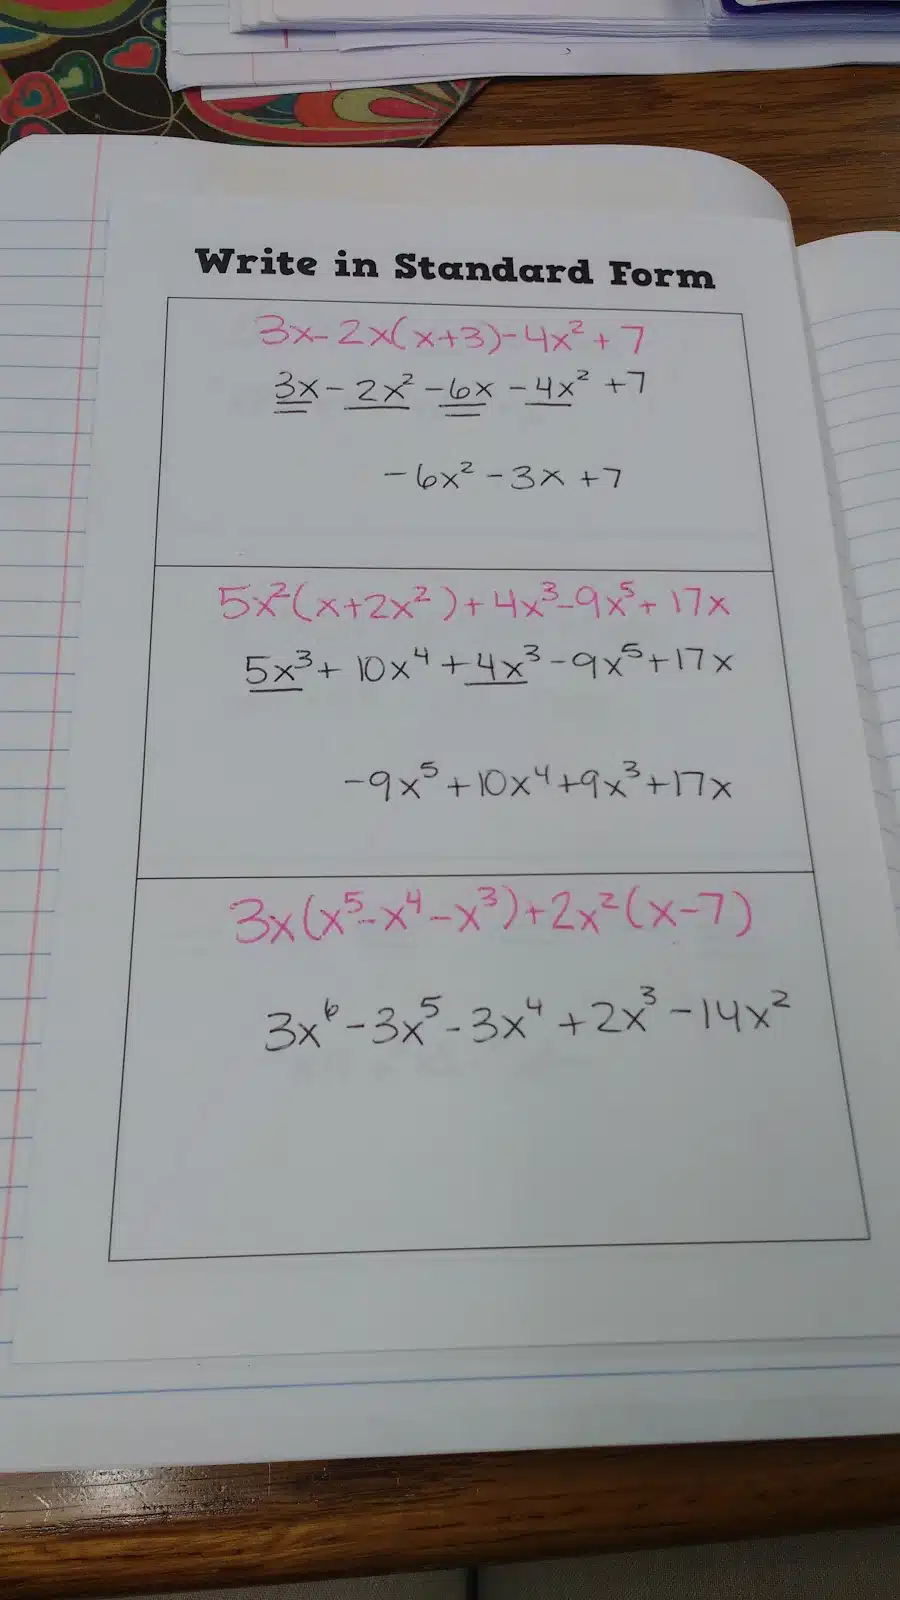 Write in Standard Form
3x-2x(x+3)-4x²+7
3x-2x²-6x-4x²+7
-6x²-3x+7
5x²(x+2x²)+4x³-9x⁵+17x
5x³+10x⁴+4x³-9x⁵+17x
-9x⁵+10x⁴+9x³+17x
3x(x⁵-x⁴-x³)+2x²(x-7)
3x⁶-3x⁵-3x⁴+2x³-14x²